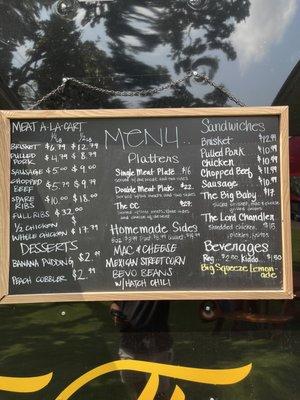 MEAT A-LA-CART
1/2 LB 1 LB
BRISKET $6.99 $12.99
PULLED PORK $4.99 $8.99
SAUSAGE $5.00 $9.00
CHOPPED BEEF $5.99 $9.99
SPARE RIBS $10.00 $18.00
FULL RIBS $32.00
1/2 CHICKEN
WHOLE CHICKEN $17.99
DESSERTS
BANANA PUDDING $2.99
PEACH COBBLER $2.99
MENU
Platters
Single Meat Plate $16
Double Meat Plate $22
The CC
Homemade Sides
MAC & CHEESE
MEXICAN STREET CORN
BEVO BEANS
W/HATCH CHILI
Sandwiches
Brisket $12.99
Pulled Pork $10.99
Chicken $10.99
Chopped Beef $11.99
Sausage $10.99
The Big Baby $17
The Lord Chandler
Shredded chicken, $15
pickles,
Beverages
Reg. $2.00 Kiddo $1.50
Big Squeeze Lemon-
ade